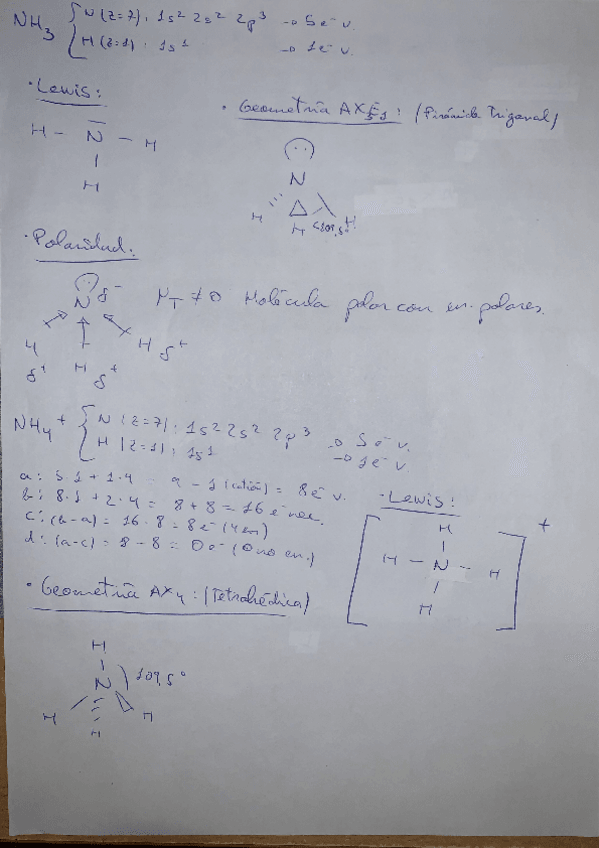 NH3 { N (z=7): 1s² 2s² 2p³ → 5e⁻ v.
H (z=1): 1s¹ → 1e⁻ v.
· Lewis:
H – N – H
H
· Geometría AX3E1: (Pirámide Trigonal)
N
H H H <109,5°
· Polaridad:
N δ⁻
H δ⁺ H δ⁺ H δ⁺
μT ≠ 0 Molécula polar con en. polares.
NH4⁺ { N (z=7): 1s² 2s² 2p³ → 5e⁻ v.
H (z=1): 1s¹ → 1e⁻ v.
a: 5·1 + 1·4 = 9 - 1 (catión) = 8e⁻ v.
b: 8·1 + 2·4 = 8 + 8 = 16 e⁻ nec.
c: (b-a) = 16-8 = 8e⁻ (4 en)
d: (a-c) = 8 - 8 = 0e⁻ (0 no en.)
· Lewis:
[ H
H – N – H
H ]⁺
· Geometría AX4: (Tetrahédica)
H
N 109,5°
H H H